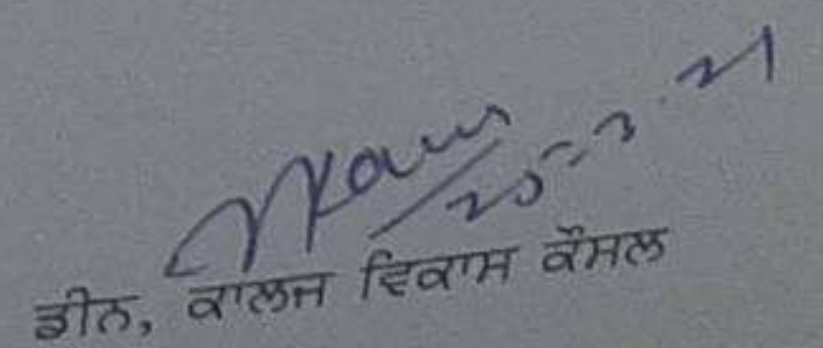 25-3-21
ਡੀਨ, ਕਾਲਜ ਵਿਕਾਸ ਕੌਂਸਲ